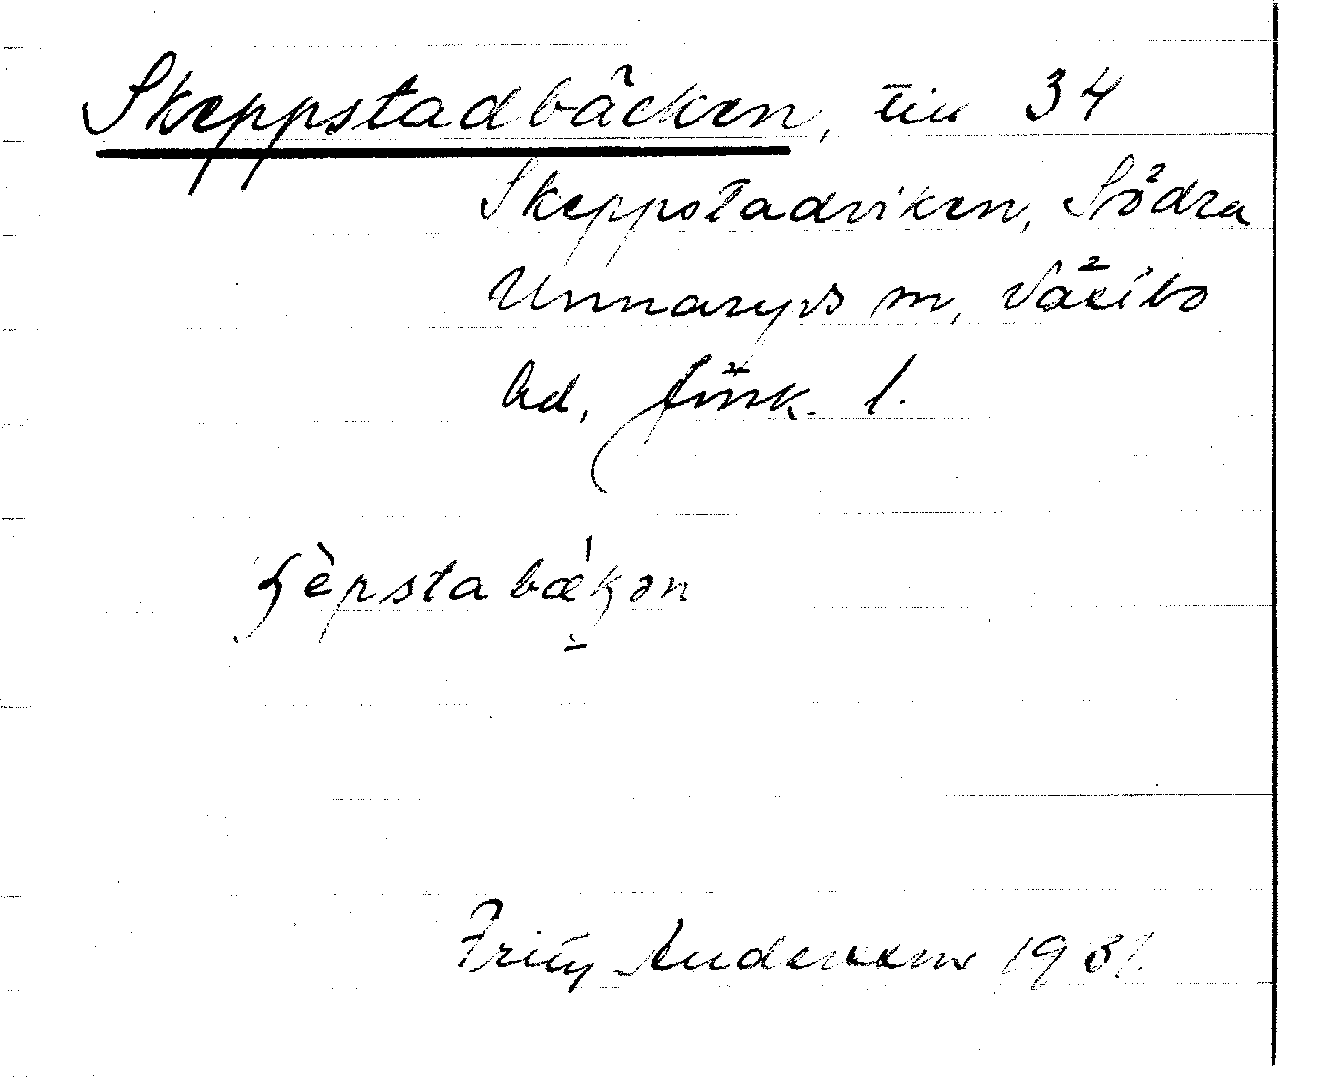 Skeppstadbäcken, till 34
Skeppstadviken, Södra
Unnaryds sn, Västbo
hd, Jönk. l.
Fritz Andersson 1931.